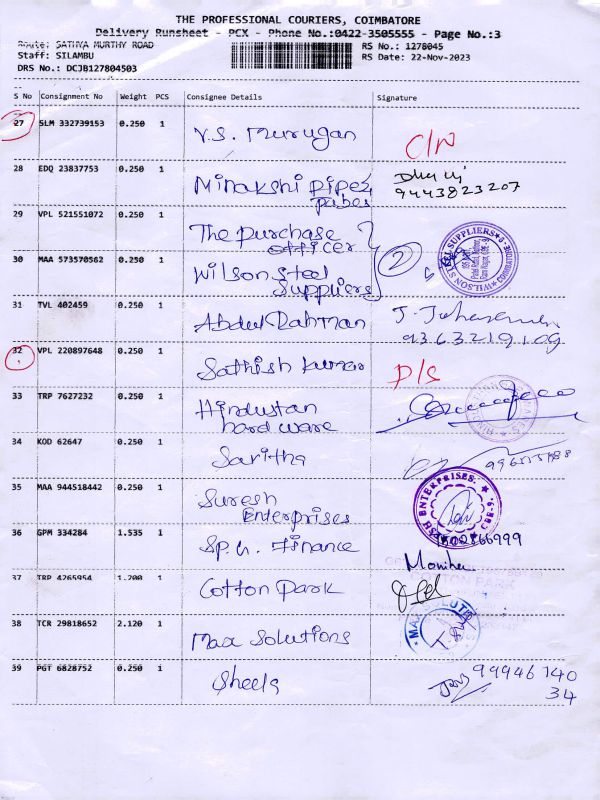 THE PROFESSIONAL COURIERS, COIMBATORE
Delivery Runsheet - PCX - Phone No.:0422-3505555 - Page No.:3
Route: SATHYA MURTHY ROAD
RS No.: 1278045
Staff: SILAMBU
RS Date: 22-Nov-2023
DRS No.: DCJB127804503
S No Consignment No Weight PCS Consignee Details Signature
27 SLM 332739153 0.250 1 V.S. Murugan C/N
28 EDQ 23837753 0.250 1 Minakshi Pipes
9443823207
29 VPL 521551072 0.250 1 The purchase
officer
2
30 MAA 573570562 0.250 1 Wilson Steel
Suppliers
31 TVL 402459 0.250 1 Abdul Rahman
9363219109
32 VPL 220897648 0.250 1 Sathish Kumar D/S
33 TRP 7627232 0.250 1 Hindustan
hardware
34 KOD 62647 0.250 1 Saritha
35 MAA 944518442 0.250 1 Suresh
Enterprises
36 GPM 334284 1.535 1 Finance
37 TRP 4265954 1.200 1 Cotton Park
38 TCR 29818652 2.120 1 Max Solutions
39 PGT 6828752 0.250 1 Sheela 99946 140
34